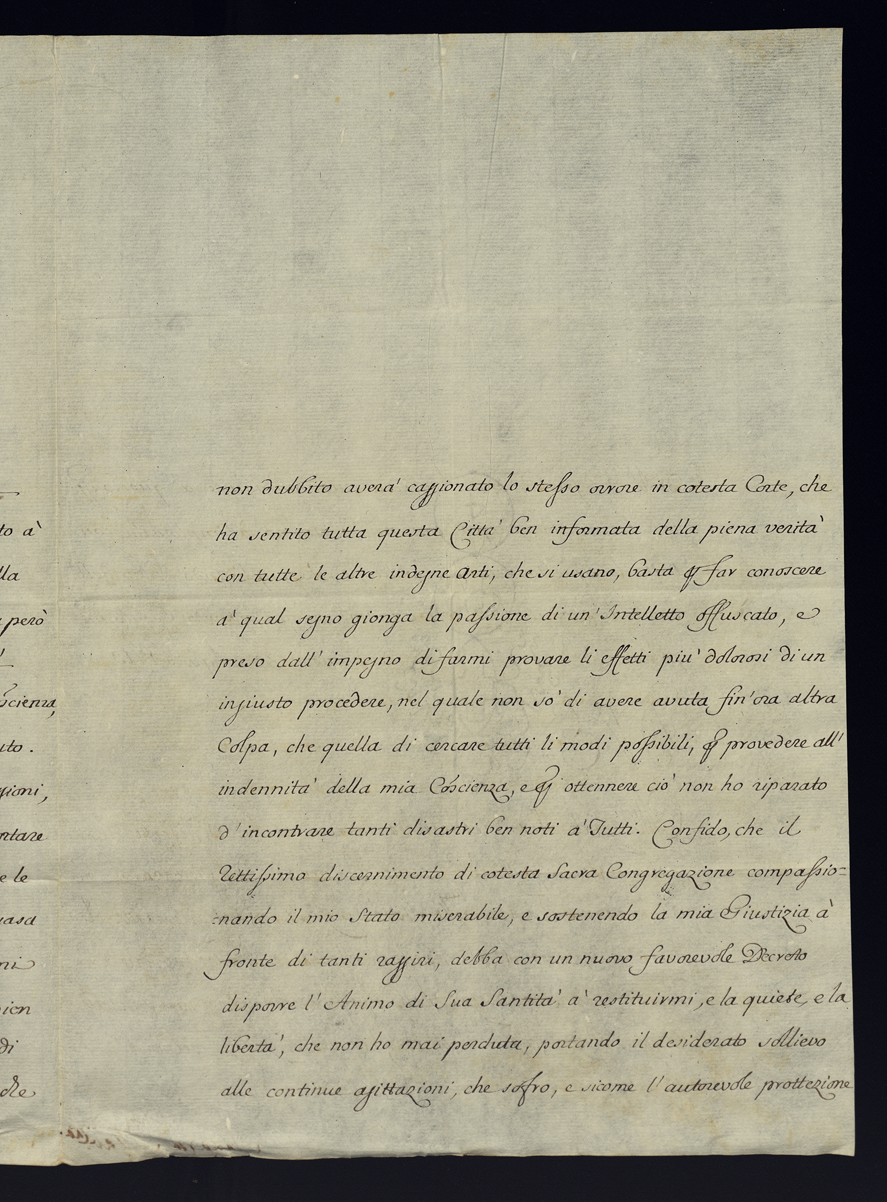 to à
lla
però
scienza,
uto.
ssioni,
ntare
e le
uasa
ni
ien
di
che
non dubbito averà caggionato lo stesso orrore in cotesta Corte, che
ha sentito tutta questa Città ben informata della piena verità
con tutte le altre indegne arti, che si usano, basta ꝑ far conoscere
a' qual segno gionga la passione di un' Intelletto offuscato, e
preso dall' impegno di farmi provare li effetti piu' dolorosi di un
ingiusto procedere, nel quale non so' di avere avuta fin' ora altra
Colpa, che quella di cercare tutti li modi possibili, ꝑ provedere all'
indennita' della mia Coscienza, e ꝑ ottennere ciò non ho riparato
d' incontrare tanti disastri ben noti a' Tutti. Confido, che il
Rettissimo discernimento di cotesta Sacra Congregazione compassio=
=nando il mio Stato miserabile, e sostenendo la mia Giustizia à
fronte di tanti raggiri, debba con un nuovo favorevole Decreto
disporre l' Animo di Sua Santita' a' restituirmi, e la quiete, e la
liberta', che non ho mai perduta, portando il desiderato sollievo
alle continue agittazioni, che soffro, e sicome l' autorevole prottezione